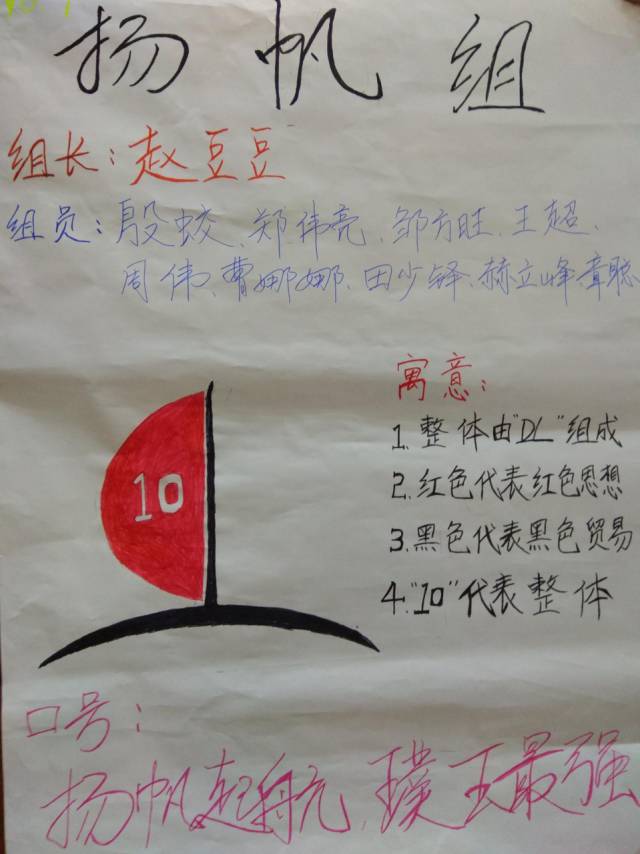 扬帆组
组长：赵豆豆
组员：殷蛟、郑伟亮、邹方旺、王超、
周伟、曹娜娜、田少铎、赫立峰 章聪
10
寓意：
1、整体由"DL"组成
2、红色代表红色思想
3、黑色代表黑色贸易
4、"10"代表整体
口号：
扬帆起航，璞玉最强